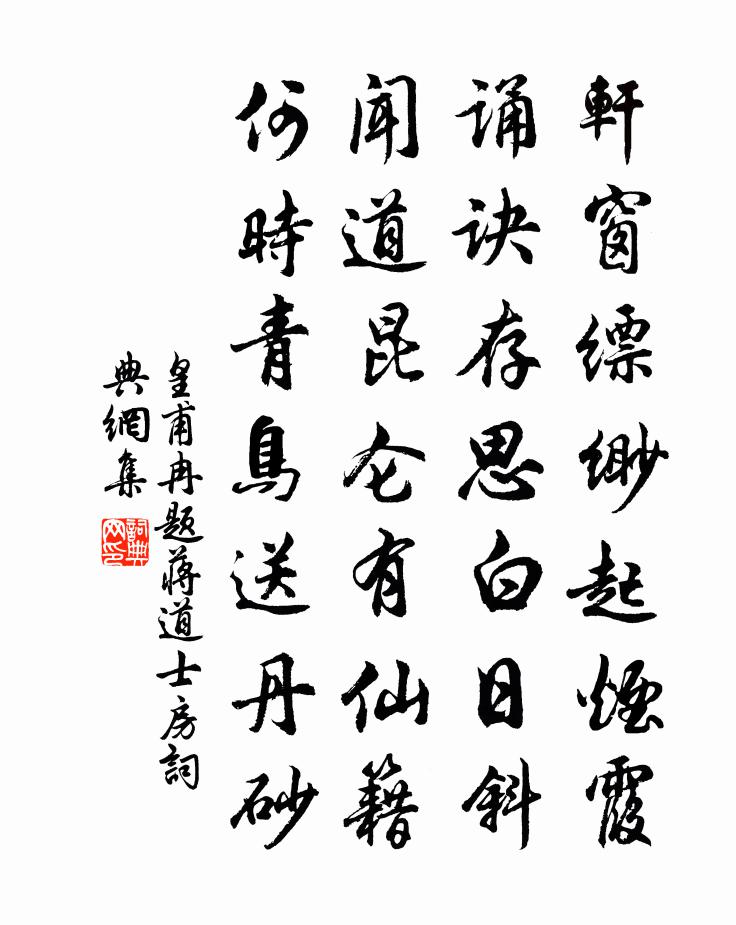 軒窗縹緲起煙霞
诵诀存思白日斜
闻道昆仑有仙籍
何時青鳥送丹砂
皇甫冉题蒋道士房詞
典網集
詞典网印